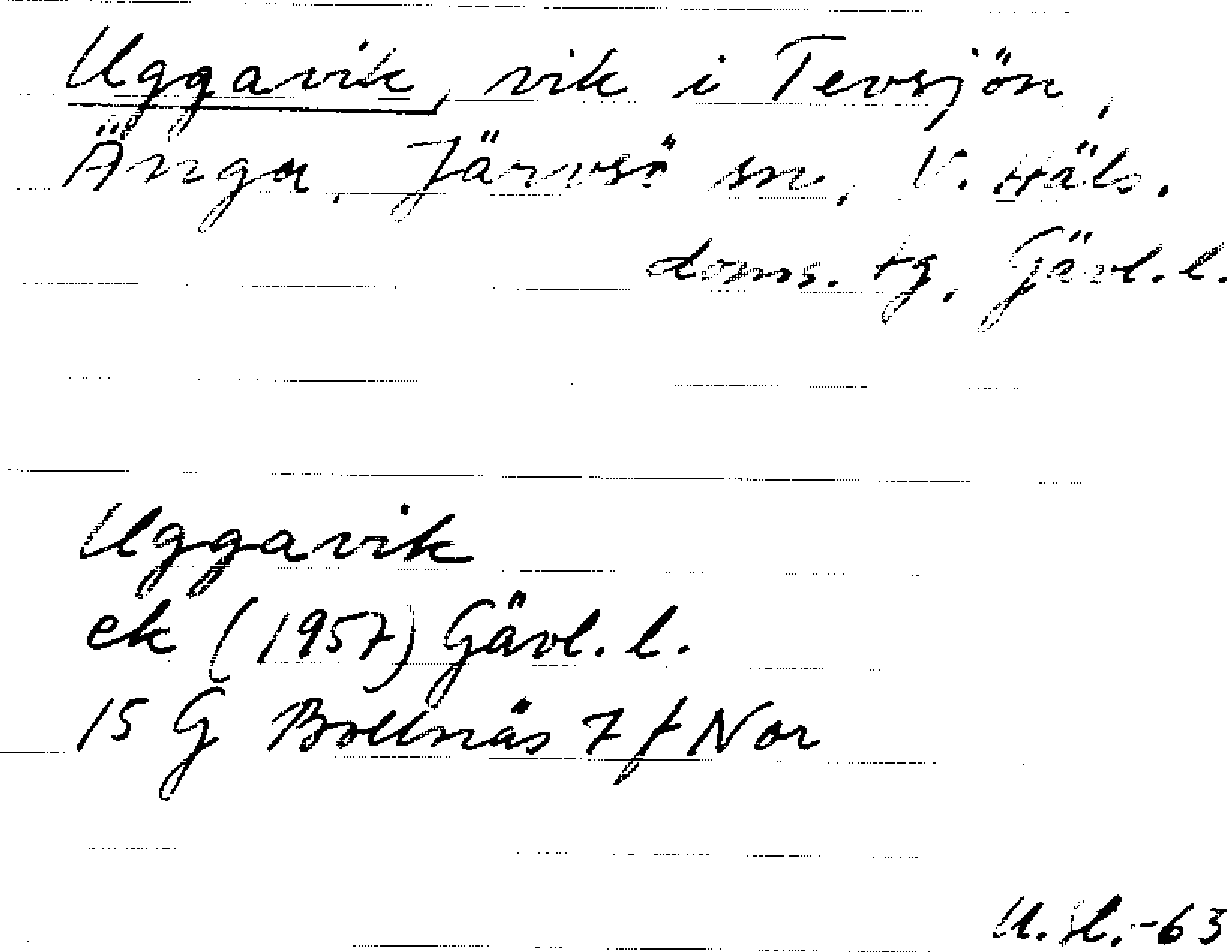 Uggavik, vik i Tevsjön,
Änga, Järvsö sn, V. Häls.
doms. tg, Gävl. l.
Uggavik
ek (1957) Gävl. l.
15 G Bollnäs 7 f Nor
U. Sl. -63